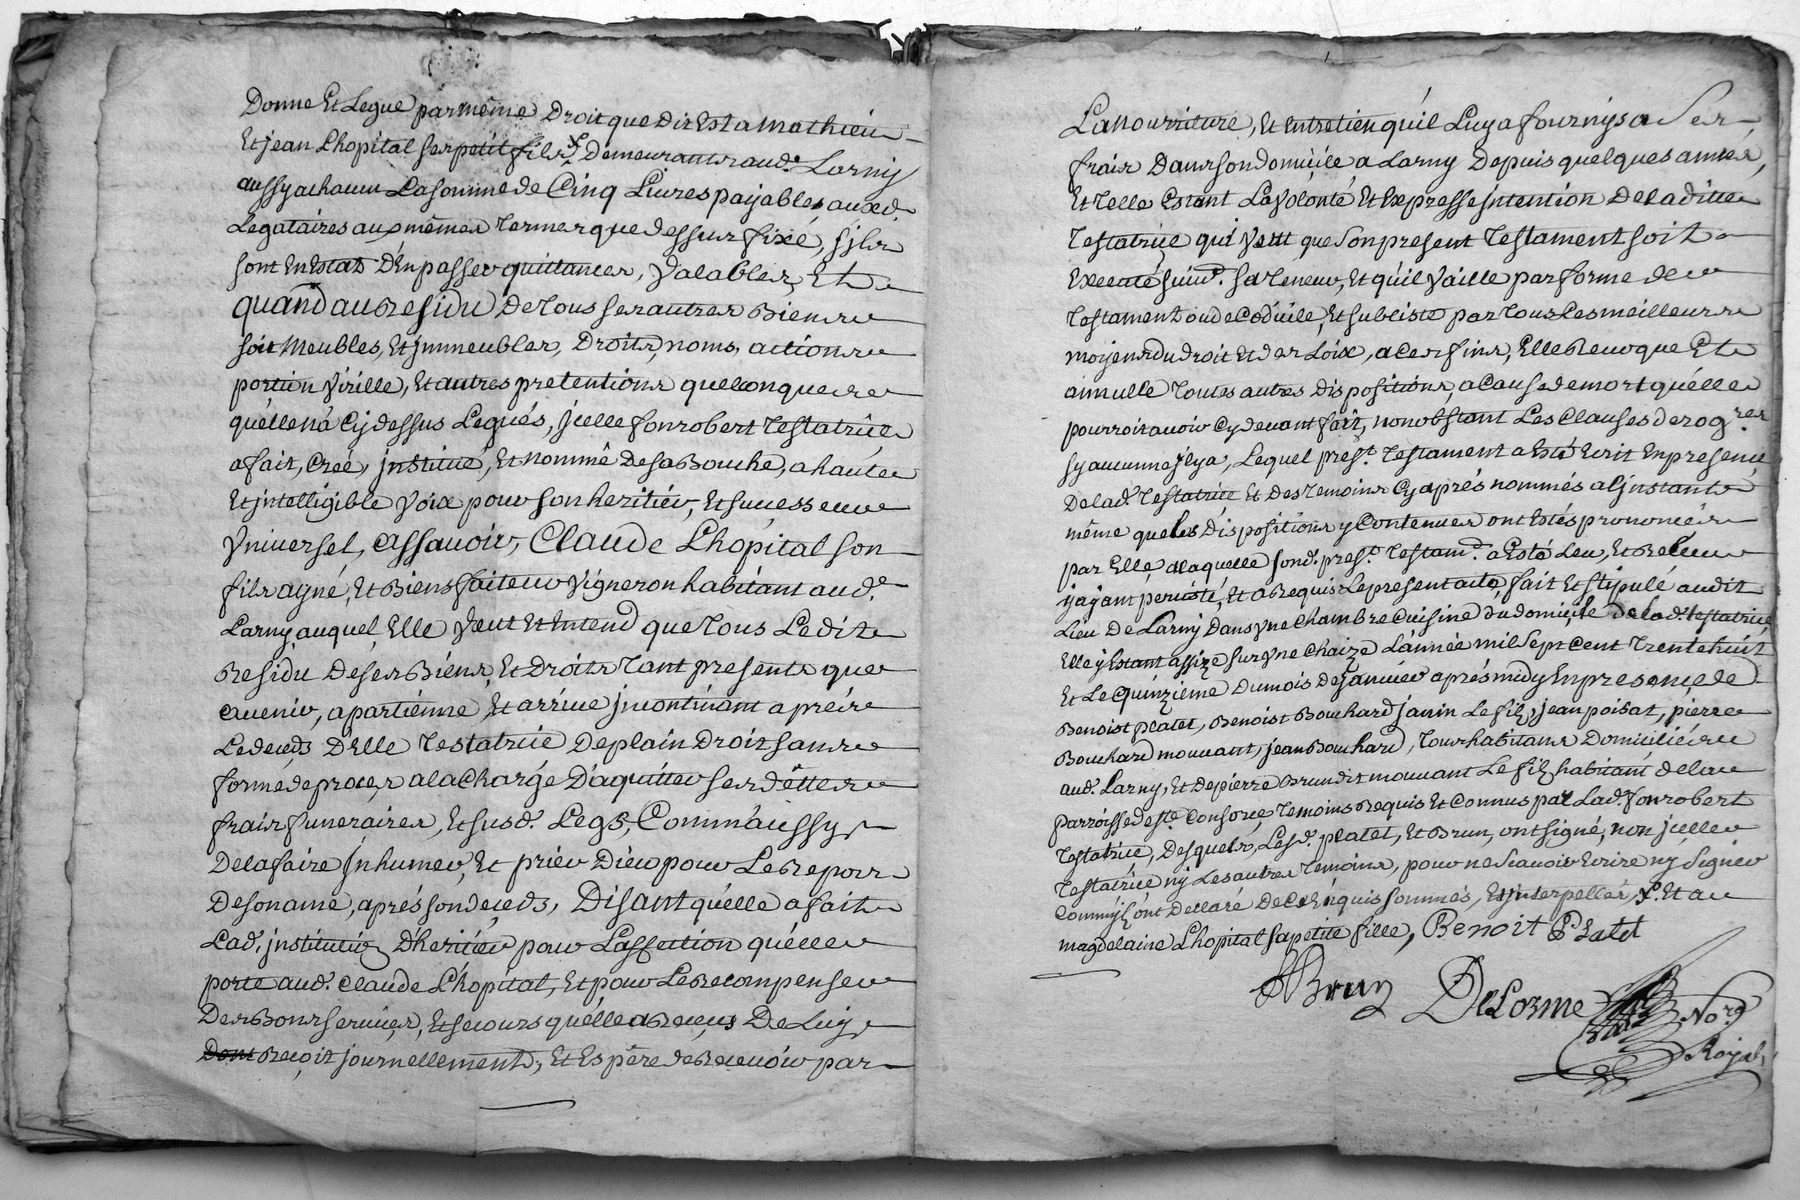 Donne Et Legue par même Droit que Dit Est a Mathieu
Et jean Lhopital ses petit fils x Demeurants aud.e Larny
aussy achacun La somme de Cinq Livres payables ausd.
Legataires aux mêmes Termes que dessus fixé, s'ils
sont En Estat D'En passer quittances, Valables, Et
quand au Residu De Tous ses autres Biens
soit Meubles, Et jmmeubles, Droits, noms, actions
portion Virille, Et autres pretentions quelconques
qu'elle n'a Cy dessus Legués, jcelle fonrobert Testatrice
a fait, Creé, jnstitué, Et Nommé De sa Bouche, a haute
Et jntelligible Voix pour son heritiér, Et successeur
Vniversel, assavoir, Claude Lhopital son
fils ayné, Et Biensfaiteur Vigneron habitant aud.e
Larny, auquel Elle Veut Et Entend que Tous Ledit
Residu De ses Biéns, Et Droits Tant presents que
avenir, apartiénne Et arrive jncontinant aprés
Le deceds D'Elle Testatrice De plain Droit sans
forme de procés, a la Charge D'aquitter ses dêttes
frais funeraires, Et susd. Legs, Comm'aussy
De la faire jnhumer, Et priér Diéu pour Le Repos
De son ame, aprés son deceds, Disant qu'elle a fait
Lad. jnstitutiõ D'heritiér pour L'affection qu'elle
porte aud. Claude Lhopital, Et pour Le Recompenser
Des Bons services, Et secours qu'elle a Reçus De Luy
Dont Reçoit journellement, Et Espére de Recevoir par
La Nourriture, Et Entretien qu'il Luy a fournys a Ses
frais Dans son domicile a Larny Depuis quelques années,
Et Telle Estant La Volonté Et Expresse jntention De la ditte
Testatrice qui Veut que Son present Testament soit
Executé suiv.t sa Teneur, Et qu'il Vaille par forme de
Testament ou de Codicile, Et subsiste par Tous Les meilleurs
moyens du Droit Et des Loix, a ces fins, Elle Revoque Et
annulle Toutes autres Dispositions, a cause de mort qu'elle
pourroit avoir Cy devant fait, nonobstant Les Clauses derog.res
sy aucunne jl y a, Lequel pres.t Testament a Esté Ecrit En presence
De lad. Testatrice Et Des Temoins Cy aprés nommés a l'jnstant
même que les Dispositions y Contenues ont Estés prononcés
par Elle, a laquelle sond. pres.t Testam.t a Esté Leu, Et Releu
y ayant percisté, Et a Requis Le present acte, fait Et stipulé audit
Lieu De Larny Dans Vne Chambre Cuisine du domicile De lad. testatrice
Elle y Estant assize sur Vne Chaize L'année mil Sept Cent Trente huit
Et Le Quinzieme Du mois De janvier aprés midy En presence de
Benoist Platet, Benoist Bouchard janin Le fils, jean poisat, pierre
Bouchard mouvant, jean Bouchard, Tous habitans Domiciliés
aud. Larny, Et De pierre Brun dit mouvant Le fils habitant de la
parroisse de s.te Consorce Temoins Requis Et Connus par Lad. fonrobert
Testatrice, Desquels, Lesd. platet, Et Brun, ont signé, non jcelle
Testatrice ny Les autres Temoins, pour ne Scavoir Ecrire ny Signer
Comm'jls ont Declaré De Ce Enquis sommés, Et jnterpellés, x. Et a
magdelaine Lhopital sa petite fille, Benoit Platet
P Brun DeLorme Nore
Royal